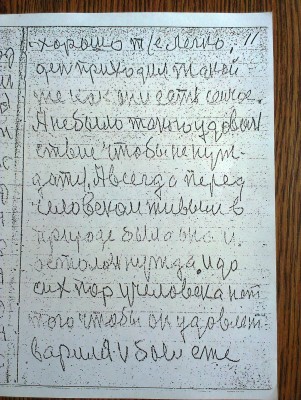 хорошо тяжело, 11
ден приходил такой
же как он и есть сейчас.
А не было такого удовол
ствие чтобы не нуж
дать, А всегда перед
человеком живым в
природе была она и
осталась нужда. И до
сих пор у человека нет
того чтобы он удовлет
варился и был